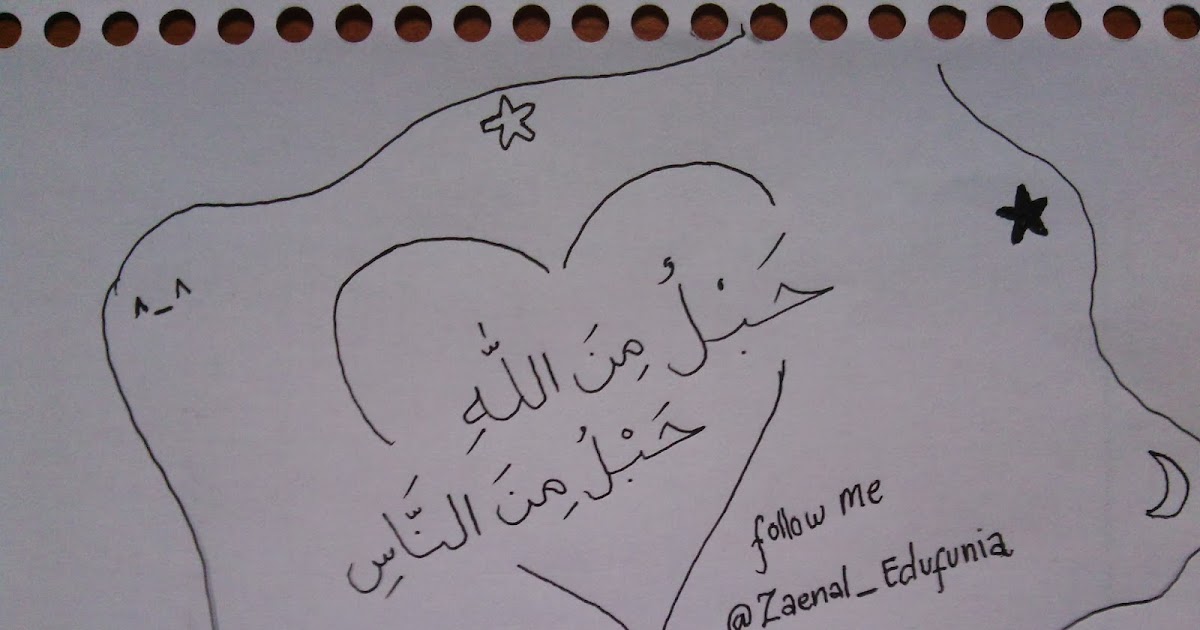 ^_^
حَبْلُ مِنَ اللّٰهِ
حَبْلُ مِنَ النَّاسِ
follow me
@Zaenal_Edufunia